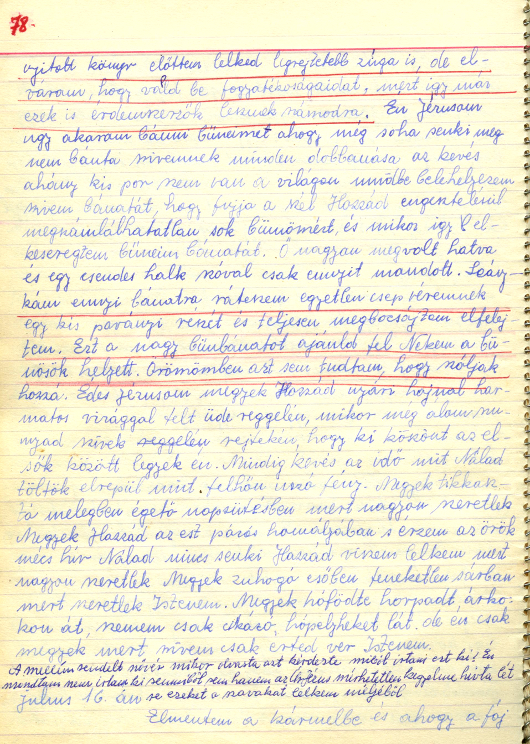 78.
nyitott könyv előttem lelked legrejtettebb zúga is, de el-
várom, hogy váld be fogyatékoságaidat, mert igy már
ezek is érdemszerzők lesznek számodra. Én Jézusom
ugy akarom bánni büneimet ahogy még soha senki meg
nem bánta szivemnek minden dobbanása az kevés
ahány kis por szem van a világon mindbe belehelyezem
szivem bánatát, hogy fujja a szél Hozzád engesztelésül
megszámlálhatatlan sok bünömért, és mikor igy el-
keseregtem büneim bánatát. Ő nagyon megvolt hatva
és egy csendes halk szóval csak ennyit mondott. Leány-
kám ennyi bánatra ráteszem egyetlen csep véremnek
egy kis parányi részét és teljesen megbocsájtom elfelej-
tem. Ezt a nagy bünbánatot ajánld fel Nekem a bü-
nösök helyett. Örömömben azt sem tudtam, hogy szóljak
hozzá. Édes Jézusom megyek Hozzád nyári hajnal har-
matos virággal telt üde reggelén, mikor még álom szu-
nyad szivek reggelén rejtekén, hogy ki köszönt az el-
sők között legyek én. Mindig kevés az idő mit Nálad
töltök elrepül mint felhőn uszó fény. Megyek tikkasz-
tó melegben égető napsütésben mert nagyon szeretlek
Megyek Hozzád az est párás homályában s érzem az örök
mécs hiv Nálad nincs senki Hozzád viszem lelkem mert
nagyon szeretlek Megyek zuhogó esőben feneketlen sárban
mert szeretlek Istenem. Megyek hófödte horpadt árko-
kon át, szemem csak cikázó, hópelyheket lát. de én csak
megyek mert szivem csak érted ver Istenem.
A mellém rendelt nővér mikor olvasta azt kérdezte miből irtam ezt ki? Én
mondtam nem irtam ki semmiből sem hanem az Ur Jézus mérhetetlen kegyelme hivta lét
julius 16. án re ezeket a szavakat lelkem mélyéből
Elmentem a kármelbe és ahogy a fáj